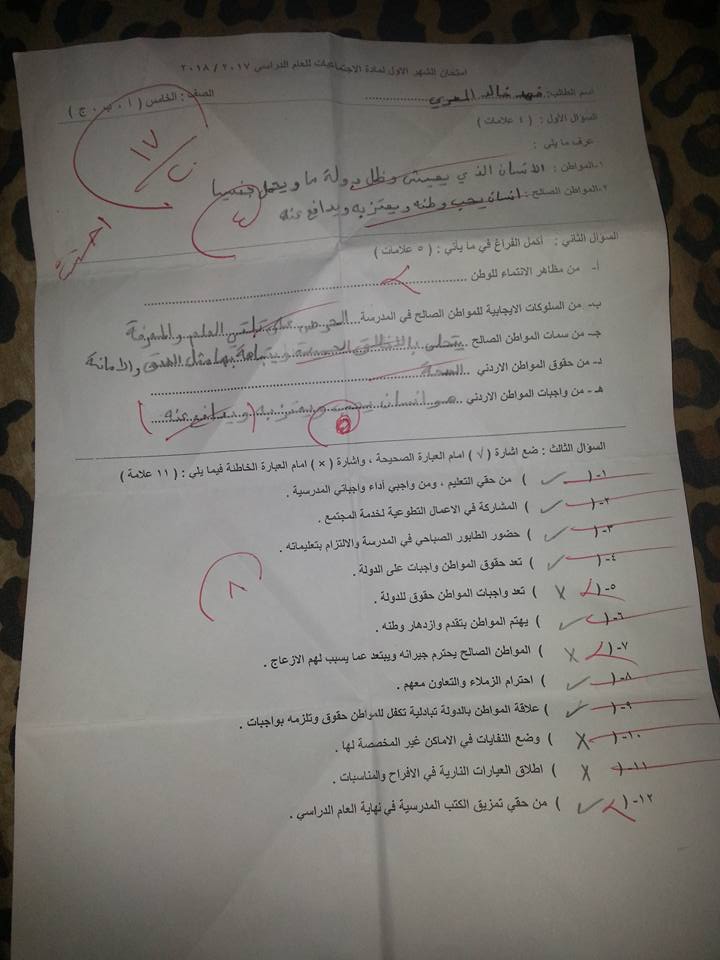 امتحان الشهر الاول لمادة الاجتماعيات للعام الدراسي ٢٠١٧ / ٢٠١٨
اسم الطالب: فهد خالد الصف : الخامس ( أ ، ب ، ج )
١٧
٢٠
السؤال الأول : ( ٤ علامات )
عرف ما يلي :
١-المواطن : الانسان الذي يعيش وظل بدولة ما ويحمل
٢-المواطن الصالح : انسان يحب وطنه ويعتز به ويدافع عنه
٤
السؤال الثاني : أكمل الفراغ في ما يأتي : ( ٥ علامات )
أ- من مظاهر الانتماء للوطن
ب- من السلوكات الايجابية للمواطن الصالح في المدرسة الحرص على تلقي العلم والمعرفة
جـ- من سمات المواطن الصالح يتحلى بالاخلاق الحسنة مثل الصدق والامانة
د- من حقوق المواطن الاردني الصحة
هـ- من واجبات المواطن الاردني هو انسان يحب ويعتز به ( ويدافع عنه )
٥
السؤال الثالث : ضع اشارة ( √ ) امام العبارة الصحيحة ، واشارة ( × ) امام العبارة الخاطئة فيما يلي : ( ١١ علامة )
١- ( ✓ ) من حقي التعليم ، ومن واجبي أداء واجباتي المدرسية .
٢- ( ✓ ) المشاركة في الاعمال التطوعية لخدمة المجتمع .
٣- ( ✓ ) حضور الطابور الصباحي في المدرسة والالتزام بتعليماته .
٤- ( ✓ ) تعد حقوق المواطن واجبات على الدولة .
٥- ( × ) تعد واجبات المواطن حقوق للدولة .
٦- ( ✓ ) يهتم المواطن بتقدم وازدهار وطنه .
٧- ( × ) المواطن الصالح يحترم جيرانه ويبتعد عما يسبب لهم الازعاج .
٨- ( ✓ ) احترام الزملاء والتعاون معهم .
٩- ( ✓ ) علاقة المواطن بالدولة تبادلية تكفل للمواطن حقوق وتلزمه بواجبات .
١٠- ( × ) وضع النفايات في الاماكن غير المخصصة لها .
١١- ( × ) اطلاق العيارات النارية في الافراح والمناسبات .
١٢- ( ✓ ) من حقي تمزيق الكتب المدرسية في نهاية العام الدراسي .
٨